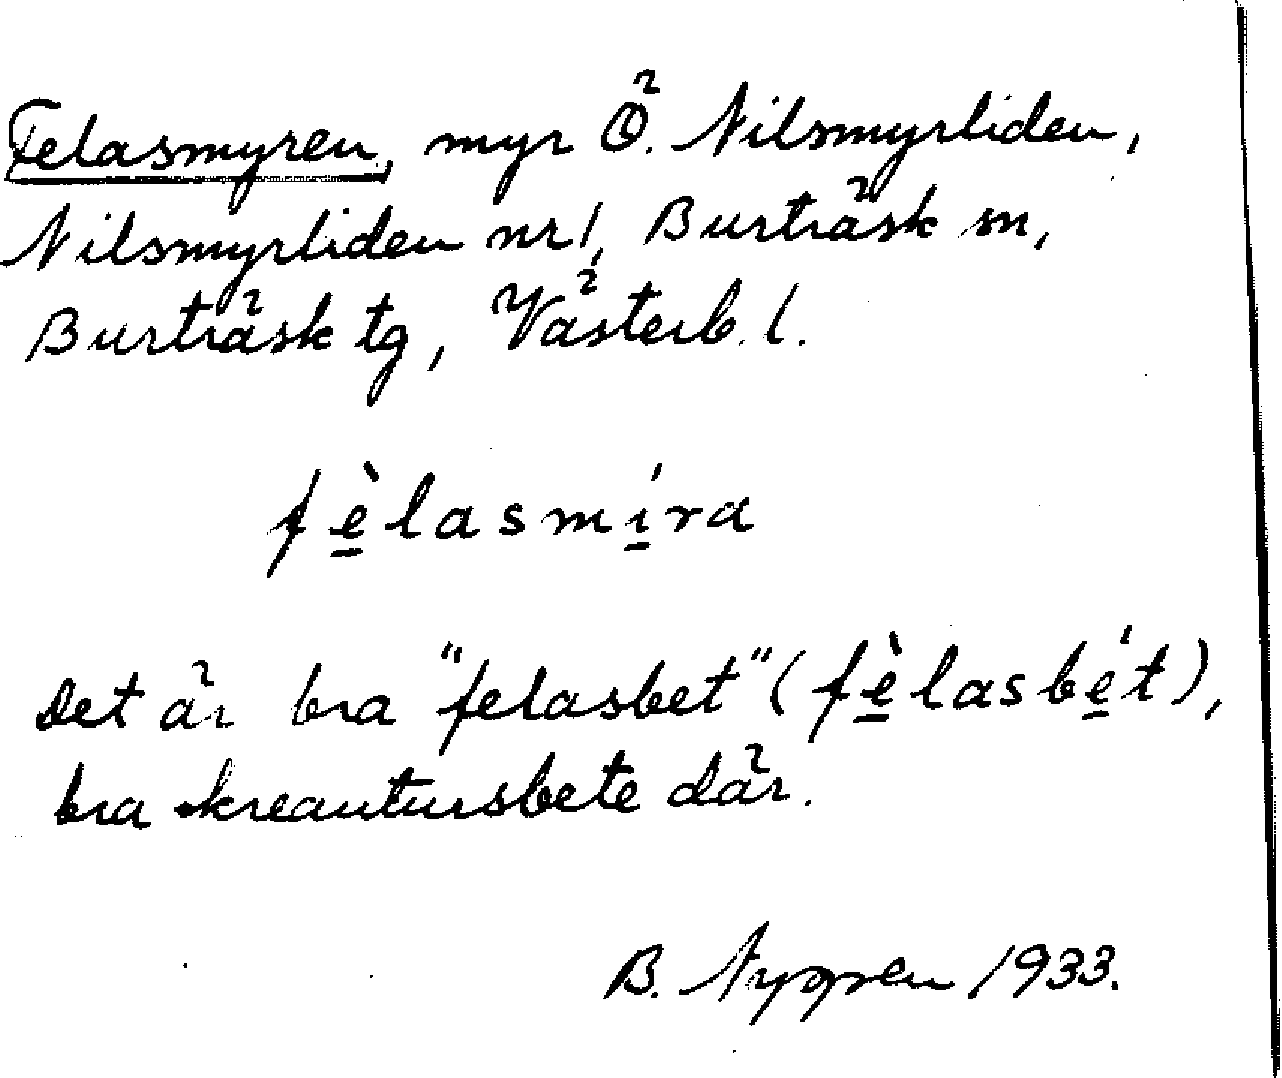 Felasmyren, myr Ö. Nilsmyrliden,
Nilsmyrliden nr 1, Burträsk sn,
Burträsk tg, Västerb. l.
fè̲lasmí̲ra
Det är bra "felasbet" (fè̲lasbé̲t),
bra kreautursbete där.
B. Nygren 1933.